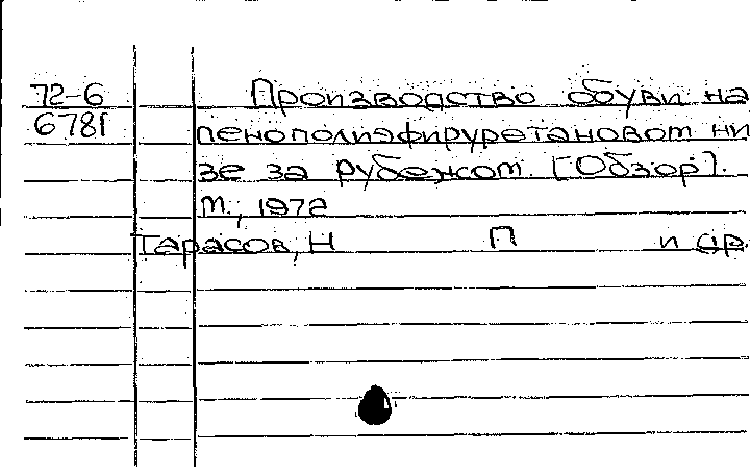 72-6 Производство обуви на
6781 пенополиэфируретановом ни
зе за рубежом. [Обзор].
М., 1972
Тарасов, Н П и др.